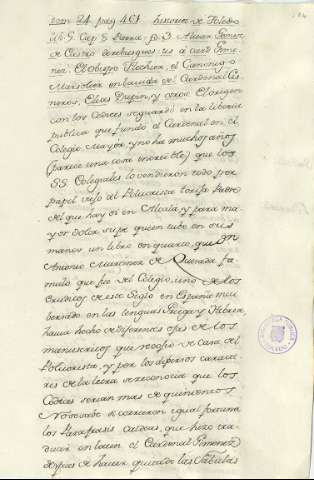 tom 24 pag 461. historia de Toledo
Alvar Gomez
de Castro de rebus gestis a Card. Xime-
nez. El obispo Flechier, el Canonigo
Marsolier en la vida del Cardenal Cis-
neros, Elias Dupin, y otros. El origen
con los Codices se guardó en la libreria
publica que fundó el Cardenal en el
Colegio Mayor, y no ha muchos años
(parece una cosa increible) que los
SS Colegiales lo vendieron todo por
papel viejo al Polvorista
del que hay oi en Alcala, y para ma-
yor dolor supe quien tubo en sus
manos un libro en quarto, que Dn
Antonio Martinez de Quesada fa-
mulo que fue del Colegio, uno de los
eruditos de este Siglo en España mui
versado en las lenguas Griega y Hebrea,
havia hecho de diferentes ojas de los
manuscritos que recogio de casa del
Polvorista, y por los diversos caracte-
res de la letra se reconocia que los
Codices serian mas de quinientos
No corrieron igual fortuna
los Parafrasis Caldeas, que hizo tra-
ducir en latin el Cardenal Ximenez
despues de haver quitado las fabulas